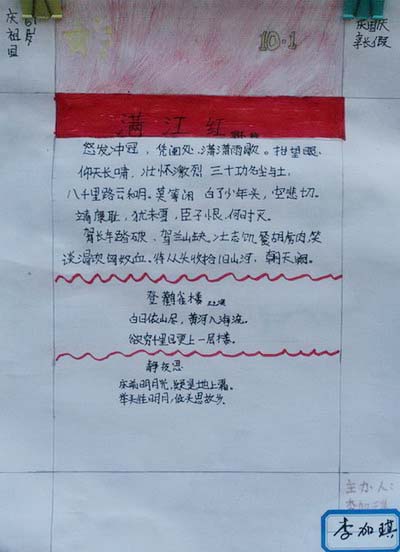 庆祖国
61岁
10·1
国庆
长假
满江红
怒发冲冠，凭阑处、潇潇雨歇。抬望眼
仰天长啸，壮怀激烈 三十功名尘与土，
八千里路云和月。莫等闲 白了少年头，空悲切。
靖康耻，犹未雪，臣子恨，何时灭。
驾长车踏破，贺兰山缺，壮志饥餐胡虏肉，笑
谈渴饮匈奴血。待从头收拾旧山河，朝天阙。
登鹳雀楼
白日依山尽，黄河入海流。
欲穷千里目更上一层楼。
静夜思
床前明月光，疑是地上霜。
举头望明月，低头思故乡。
主办人：
李加琪
李加琪